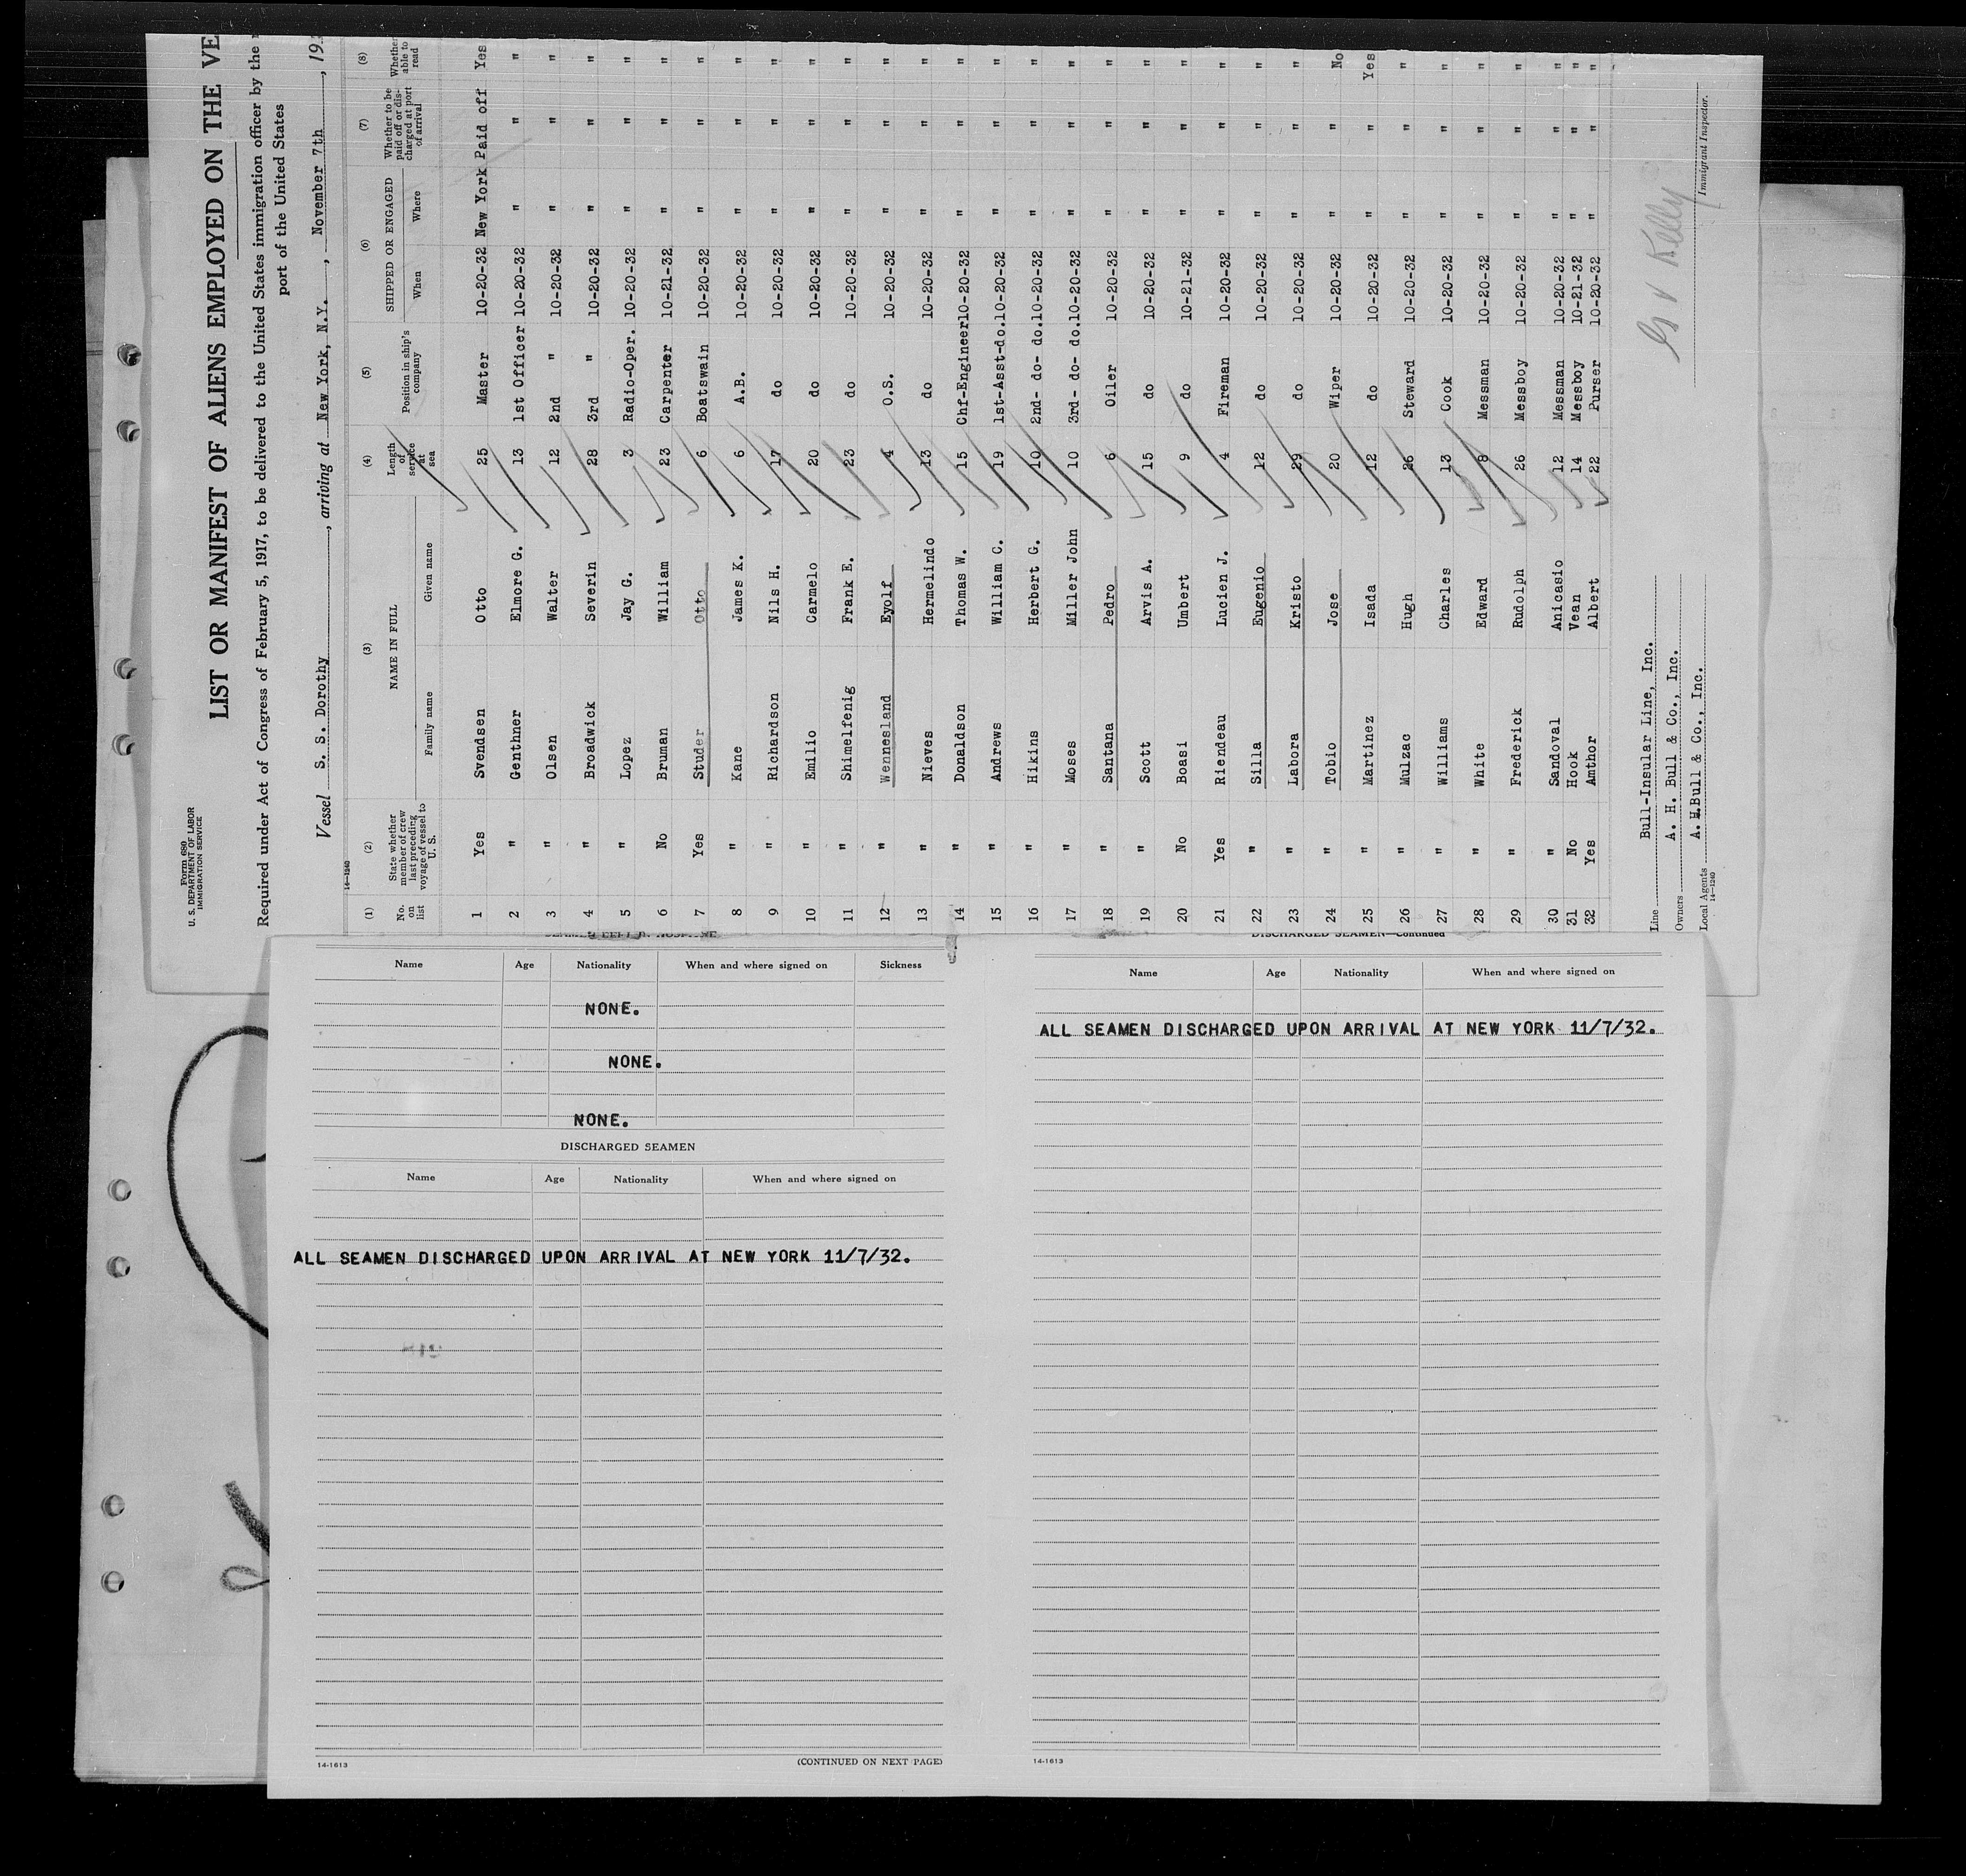 Form 680
U. S. DEPARTMENT OF LABOR
IMMIGRATION SERVICE
LIST OR MANIFEST OF ALIENS EMPLOYED ON THE VE
Required under Act of Congress of February 5, 1917, to be delivered to the United States immigration officer by the
port of the United States
Vessel S. S. Dorothy, arriving at New York, N.Y., November 7th, 19
14-1240
(1) (2) (3) (4) (5) (6) (7) (8)
No. on list State whether member of crew last preceding voyage of vessel to U. S. NAME IN FULL Family name Given name Length of service at sea Position in ship's company SHIPPED OR ENGAGED When Where Whether to be paid off or discharged at port of arrival Whether able to read
1 Yes Svendsen Otto 25 Master 10-20-32 New York Paid off Yes
2 " Genthner Elmore G. 13 1st Officer 10-20-32 " " "
3 " Olsen Walter 12 2nd " 10-20-32 " " "
4 " Broadwick Severin 28 3rd " 10-20-32 " " "
5 " Lopez Jay G. 3 Radio-Oper. 10-20-32 " " "
6 No Bruman William 23 Carpenter 10-21-32 " " "
7 Yes Studer Otto 6 Boatswain 10-20-32 " " "
8 " Kane James K. 6 A.B. 10-20-32 " " "
9 " Richardson Nils H. 17 do 10-20-32 " " "
10 " Emilio Carmelo 20 do 10-20-32 " " "
11 " Shimelfenig Frank E. 23 do 10-20-32 " " "
12 " Wennesland Eyolf 4 O.S. 10-20-32 " " "
13 " Nieves Hermelindo 13 do 10-20-32 " " "
14 " Donaldson Thomas W. 15 Chf-Engineer 10-20-32 " " "
15 " Andrews William C. 19 1st-Asst-do. 10-20-32 " " "
16 " Hikins Herbert G. 10 2nd- do- do. 10-20-32 " " "
17 " Moses Miller John 10 3rd- do- do. 10-20-32 " " "
18 " Santana Pedro 6 Oiler 10-20-32 " " "
19 " Scott Arvis A. 15 do 10-20-32 " " "
20 No Boasi Umbert 9 do 10-21-32 " " "
21 Yes Riendeau Lucien J. 4 Fireman 10-20-32 " " "
22 " Silla Eugenio 12 do 10-20-32 " " "
23 " Labora Kristo 29 do 10-20-32 " " "
24 " Tobio Jose 20 Wiper 10-20-32 " " No
25 " Martinez Isada 12 do 10-20-32 " " Yes
26 " Mulzac Hugh 26 Steward 10-20-32 " " "
27 " Williams Charles 13 Cook 10-20-32 " " "
28 " White Edward 8 Messman 10-20-32 " " "
29 " Frederick Rudolph 26 Messboy 10-20-32 " " "
30 " Sandoval Anicasio 12 Messman 10-20-32 " " "
31 No Hook Vean 14 Messboy 10-21-32 " " "
32 Yes Amthor Albert 22 Purser 10-20-32 " " "
Line Bull-Insular Line, Inc.
Owners A. H. Bull & Co., Inc.
Local Agents A.H.Bull & Co., Inc.
14-1240
G V Kelly
Immigrant Inspector.
Name Age Nationality When and where signed on Sickness
NONE.
NONE.
NONE.
DISCHARGED SEAMEN
Name Age Nationality When and where signed on
ALL SEAMEN DISCHARGED UPON ARRIVAL AT NEW YORK 11/7/32.
14-1613 (CONTINUED ON NEXT PAGE)
DISCHARGED SEAMEN—Continued
Name Age Nationality When and where signed on
ALL SEAMEN DISCHARGED UPON ARRIVAL AT NEW YORK 11/7/32.
14-1613